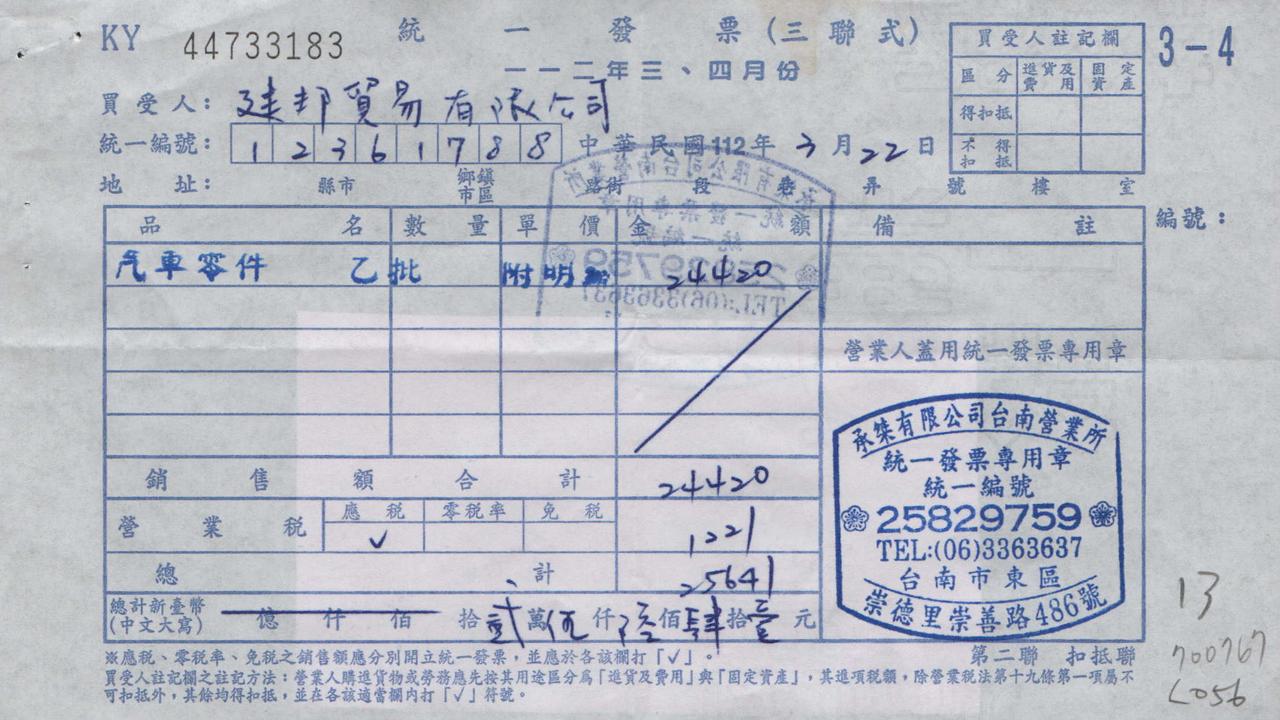 KY 44733183 統一發票(三聯式)
一一二年三、四月份
3-4
買受人註記欄
區分 進貨及費用 固定資產
得扣抵
不得扣抵
買受人: 建邦貿易有限公司
統一編號: 1 2 3 6 1 7 8 8 中華民國112年 3月22日
地址: 縣市 鄉鎮市區 路街 段 巷 弄 號 樓 室
品名 數量 單價 金額 備註 編號:
汽車零件 乙批 附明 24420
營業人蓋用統一發票專用章
銷售額合計 24420
營業稅 應稅 零稅率 免稅 1221
✓
總計 25641
總計新臺幣(中文大寫) 億 仟 佰 拾貳萬伍仟陸佰肆拾壹元
承桀有限公司台南營業所
統一發票專用章
統一編號
25829759
TEL:(06)3363637
台南市東區
崇德里崇善路486號
※應稅、零稅率、免稅之銷售額應分別開立統一發票,並應於各該欄打「✓」。
第二聯 扣抵聯
買受人註記欄之註記方法:營業人購進貨物或勞務應先按其用途區分為「進貨及費用」與「固定資產」,其進項稅額,除營業稅法第十九條第一項屬不
可扣抵外,其餘均得扣抵,並在各該適當欄內打「✓」符號。
13
700767
L056